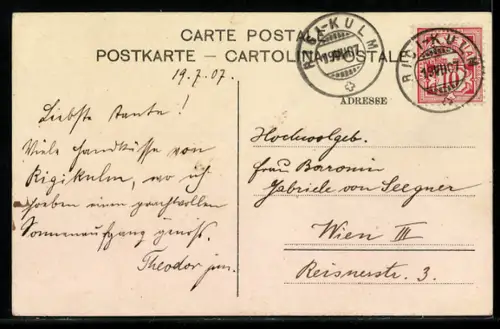 CARTE POSTALE
POSTKARTE — CARTOLINA POSTALE
RIGI-KULM
19.VII.07
RIGI-KULM
19.VII.07
10
19.7.07.
ADRESSE
Liebste Tante!
Viele Handküsse von
Rigikulm, wo ich
soeben einen prachtvollen
Sonnenaufgang genoss.
Theodor jun.
Hochwolgeb.
Frau Baronin
Gabriele von Seegner
Wien III
Reisnerstr. 3.